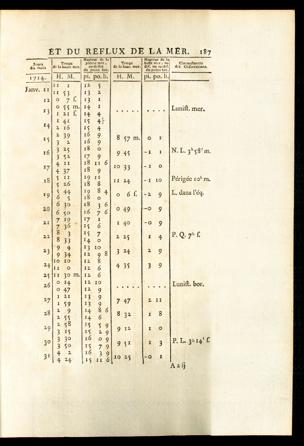 ET DU REFLUX DE LA MER. 187
Jours des mois
Temps de la haute mer.
Temps de la basse mer.
Circonstances des Observations.
1714. H. M. pi. po. li. H. M. pi. po. li.
Janv. 11 11 1 12 5
11 53 13 2
12 0 7 f. 13 1
0 55 m. 14 1 Lunist. mer.
13 1 21 f. 14 4
1 41 15 4
14 2 16 15 4
2 39 16 9 8 57 m. 0 1
15 2 53 16 9
3 25 18 0 9 45 -1 1 N. L. 3h 58' m.
16 3 52 17 9
4 11 18 11 6 10 33 -1 0
17 4 37 18 9
5 11 19 11 11 24 -1 10 Périgée 10h m.
18 5 26 18 8
5 44 19 8 4 0 6 f. -2 9 L. dans l'éq.
19 6 5 18 0
6 30 18 3 6 0 49 -0 9
20 6 50 16 7 6
7 19 17 1 1 40 -0 9
21 7 36 15 6
8 3 15 7 2 25 1 4 P. Q. 7h f.
22 8 33 14 0
9 4 13 10 3 24 2 9
23 9 34 12 9 8
10 10 12 8 4 35 3 9
24 11 0 12 6
25 11 30 m. 12 6
26 0 14 12 10 Lunist. bor.
0 47 12 9
27 1 21 13 9 7 47 2 11
1 59 13 9
28 2 9 14 8 6 8 32 1 8
2 55 14 6
29 2 58 15 5 9 9 12 1 0
3 15 15 2 9
30 3 30 16 0 9 9 51 1 3 P. L. 3h 14' f.
3 50 15 7 9
31 4 2 16 3 9 10 25 -0 1
4 24 15 11 6
A a ij